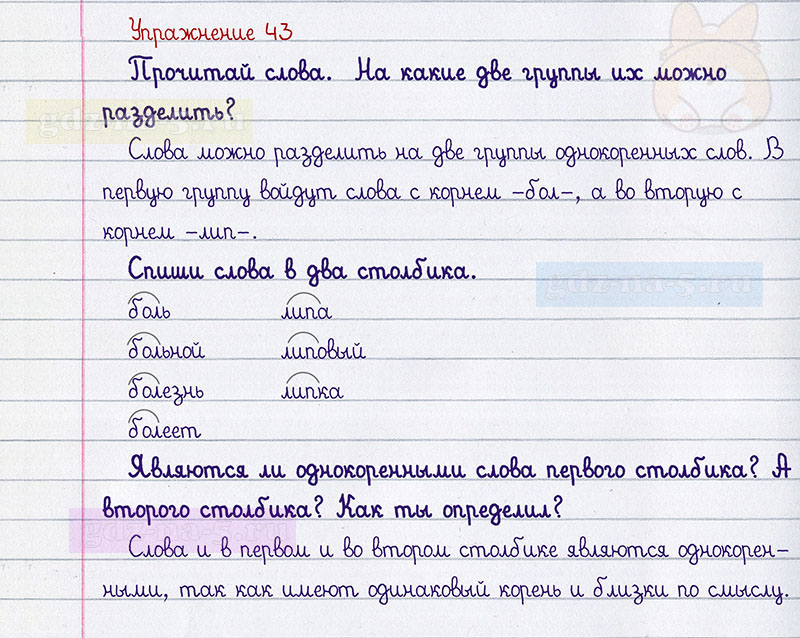 Упражнение 43
Прочитай слова. На какие две группы их можно
разделить?
gdz-na-5.ru
Слова можно разделить на две группы однокоренных слов. В
первую группу войдут слова с корнем –бол–, а во вторую с
корнем –лип–.
Спиши слова в два столбика.
gdz-na-5.ru
боль липа
больной липовый
болезнь липка
болеет
Являются ли однокоренными слова первого столбика? А
второго столбика? Как ты определил?
gdz-na-5.ru
Слова и в первом и во втором столбике являются однокорен–
ными, так как имеют одинаковый корень и близки по смыслу.